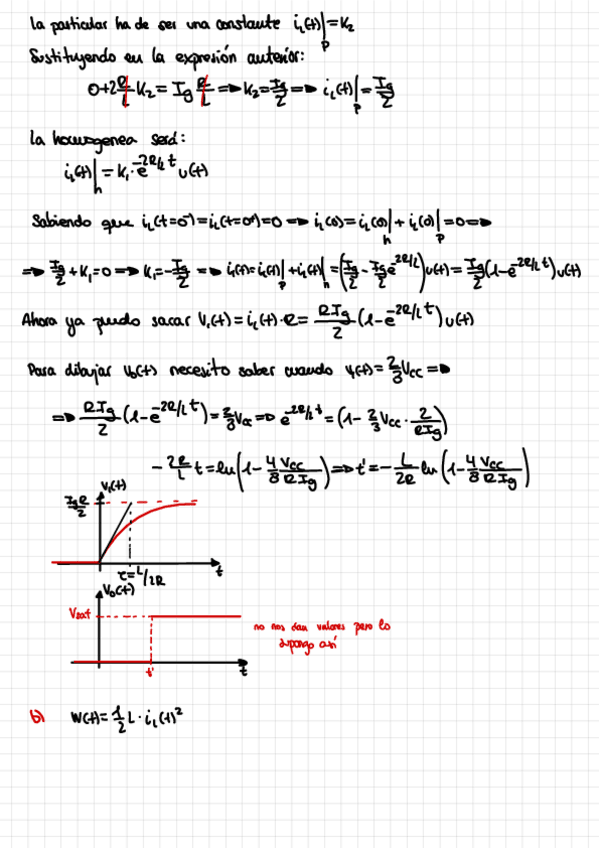 la particular ha de ser una constante i_L(t)|_p = K_2
Sustituyendo en la expresión anterior:
0+2 R/L K_2 = I_g R/L => K_2 = I_g/2 => i_L(t)|_p = I_g/2
la homogenea será:
i_L(t)|_h = K_1·e^{-2R/L t} u(t)
Sabiendo que i_L(t=0⁻)=i_L(t=0⁺)=0 => i_L(0)=i_L(0)|_h + i_L(0)|_p =0 =>
=> I_g/2 + K_1=0 => K_1=-I_g/2 => i_L(t)=i_L(t)|_p + i_L(t)|_h = (I_g/2 - I_g/2 e^{-2R/L})u(t) = I_g/2 (1-e^{-2R/L t})u(t)
Ahora ya puedo sacar V_1(t)=i_L(t)·R= RI_g/2 (1-e^{-2R/L t})u(t)
Para dibujar v_o(t) necesito saber cuando v_1(t)= 2/3 V_CC =>
=> RI_g/2 (1-e^{-2R/L t})= 2/3 V_CC => e^{-2R/L t}=(1- 2/3 V_CC · 2/RI_g)
- 2R/L t = ln(1- 4/8 V_CC/RI_g) => t'=- L/2R ln(1- 4/8 V_CC/RI_g)
V_1(t)
I_g R/2
τ=L/2R
t
V_o(t)
V_sat
no nos dan valores pero lo
supongo así
t'
t
b) W(t)= 1/2 L·i_L(t)²